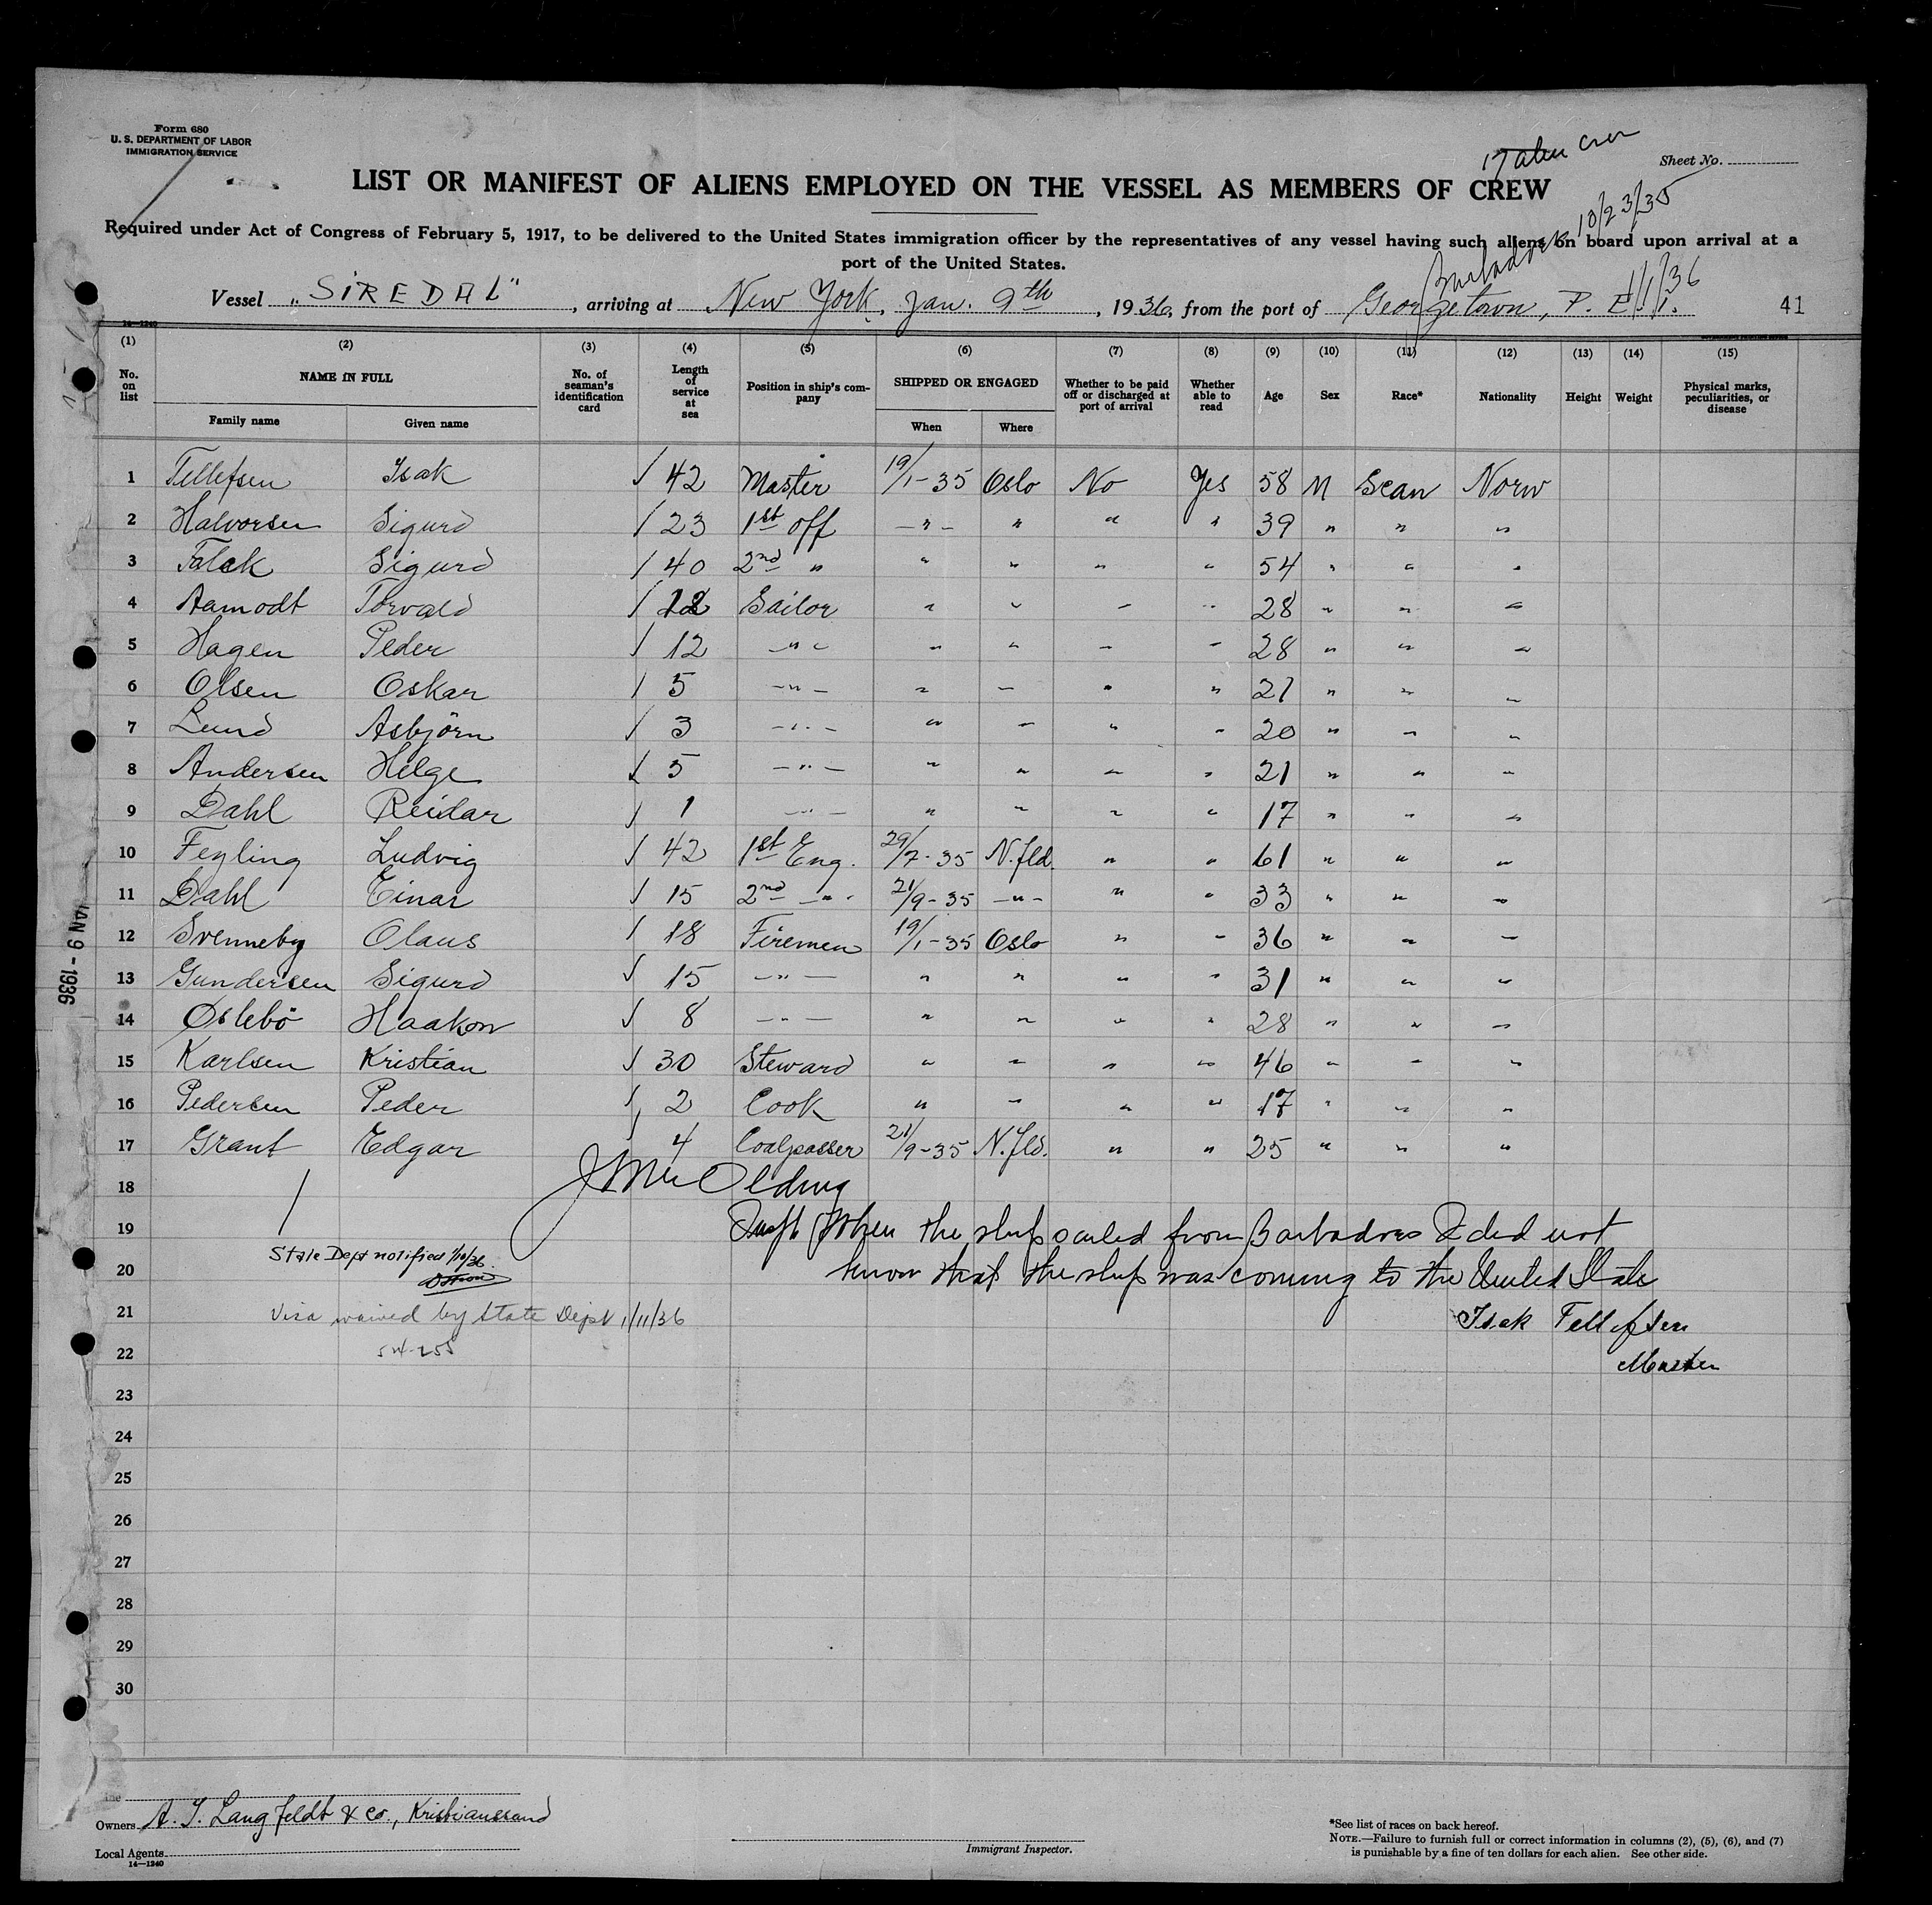 Form 680
U. S. DEPARTMENT OF LABOR
IMMIGRATION SERVICE
17 alien crew
Sheet No.
LIST OR MANIFEST OF ALIENS EMPLOYED ON THE VESSEL AS MEMBERS OF CREW
10/23/35
Required under Act of Congress of February 5, 1917, to be delivered to the United States immigration officer by the representatives of any vessel having such aliens on board upon arrival at a
port of the United States.
Barbados 1/1/36
Vessel „SIREDAL", arriving at New York, Jan. 9th, 1936, from the port of Georgetown, P. E. I. 41
14—1240
(1) (2) (3) (4) (5) (6) (7) (8) (9) (10) (11) (12) (13) (14) (15)
No. on list NAME IN FULL No. of seaman's identification card Length of service at sea Position in ship's company SHIPPED OR ENGAGED Whether to be paid off or discharged at port of arrival Whether able to read Age Sex Race* Nationality Height Weight Physical marks, peculiarities, or disease
Family name Given name When Where
1 Tellefsen Isak √ 42 Master 19/1-35 Oslo No Yes 58 M Scan Norw
2 Halvorsen Sigurd / 23 1st off —"— " " " 39 " " "
3 Falck Sigurd / 40 2nd " " " " " 54 " " "
4 Aamodt Torvald / 12 Sailor " " " " 28 " " "
5 Hagen Peder / 12 —"— " " " " 28 " " "
6 Olsen Oskar / 5 —"— " " " " 21 " " "
7 Lund Asbjörn / 3 —"— " " " " 20 " " "
8 Andersen Helge √ 5 —"— " " " " 21 " " "
9 Dahl Reidar √ 1 —"— " " " " 17 " " "
10 Feyling Ludvig √ 42 1st Eng. 29/7-35 N.fld. " " 61 " " "
11 Dahl Einar √ 15 2nd —"— 21/9-35 —"— " " 33 " " "
12 Svenneby Olaus / 18 Firemen 19/1-35 Oslo " " 36 " " "
13 Gundersen Sigurd √ 15 —"— " " " " 31 " " "
14 Öslebö Haakon √ 8 —"— " " " " 28 " " "
15 Karlsen Kristian √ 30 Steward " " " " 46 " " "
16 Pedersen Peder √ 2 Cook " " " " 17 " " "
17 Grant Edgar √ 4 Coalpasser 21/9-35 N.fld. " " 25 " " "
18
19 When the ship sailed from Barbados I did not
State Dept notified 1/10/36.
20 know that the ship was coming to the United States
21 Visa waived by State Dept 1/11/36 Isak Tellefsen
22 Master
23
24
25
26
27
28
29
30
JAN 9 - 1936
Owners A. I. Langfeldt & Co., Kristianssand
Local Agents
14—1240
Immigrant Inspector.
*See list of races on back hereof.
NOTE.—Failure to furnish full or correct information in columns (2), (5), (6), and (7)
is punishable by a fine of ten dollars for each alien. See other side.